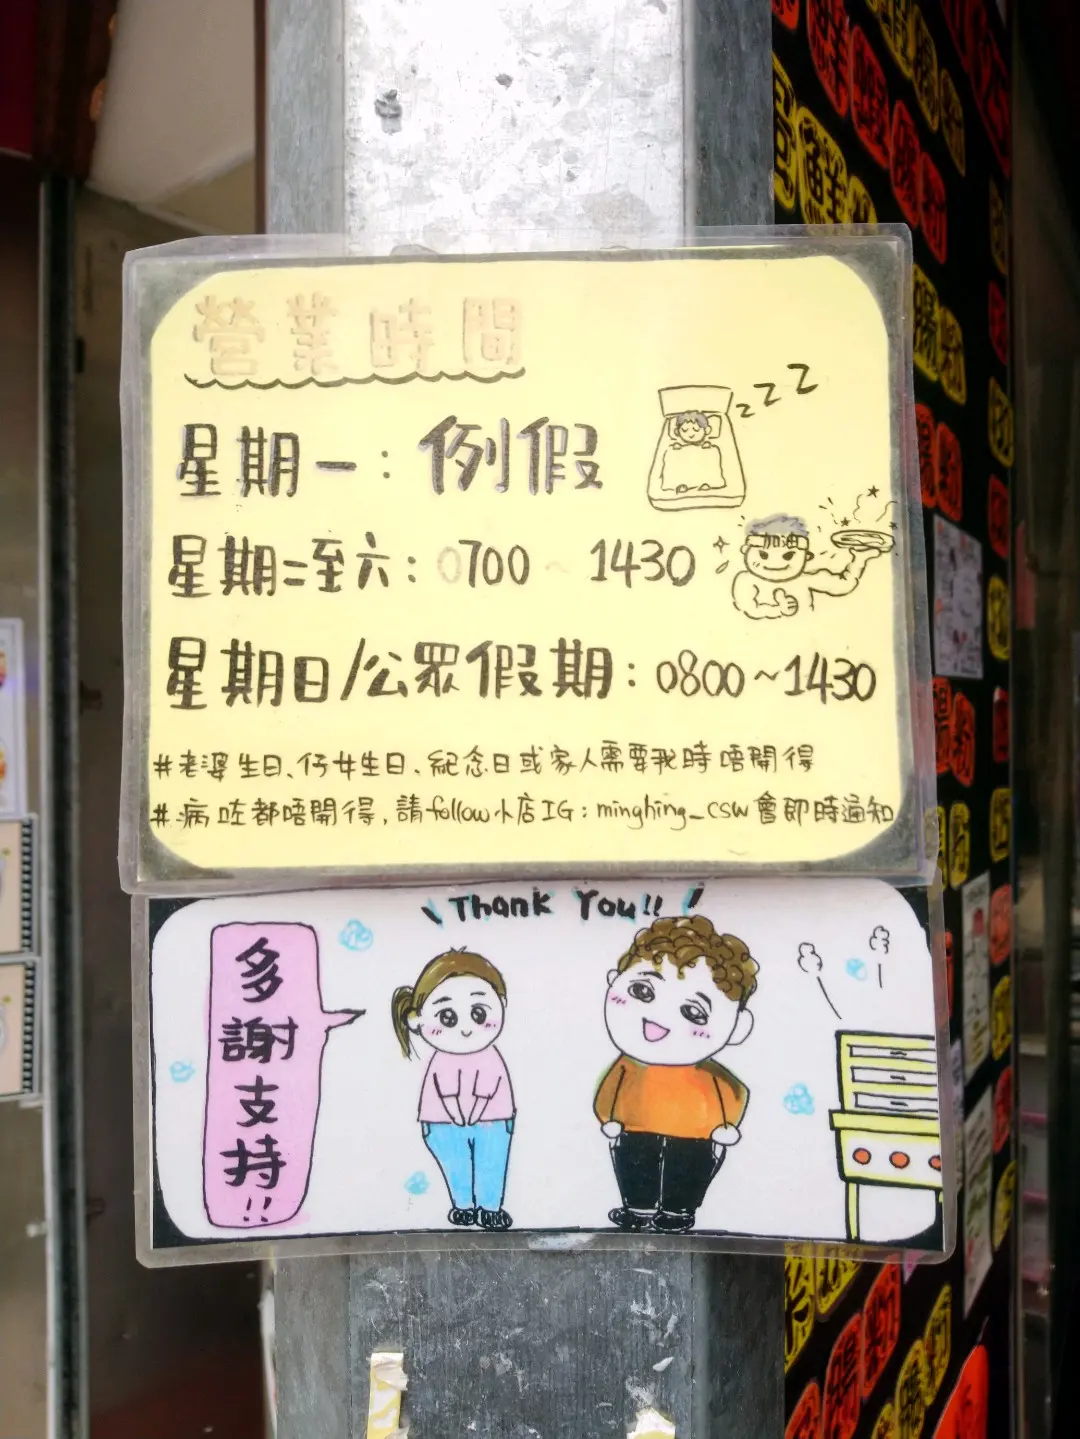 營業時間
星期一：例假
zzz
星期二至六：0700 ~ 1430
加油
星期日/公眾假期：0800~1430
#老婆生日、仔女生日、紀念日或家人需要我時唔開得
#病咗都唔開得，請follow小店IG：minghing_csw會即時通知
Thank You!!
多謝支持!!